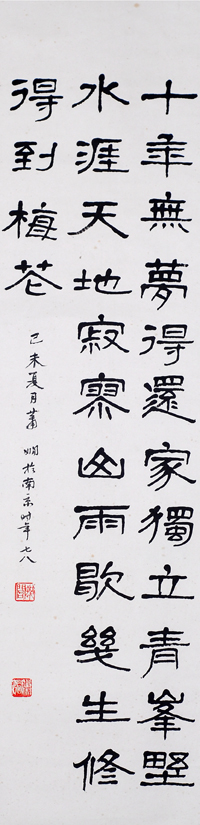 十年無夢得還家獨立青峯野
水涯天地寂寥山雨歇幾生修
得到梅花
己未夏月蕭嫻於南京時年七八